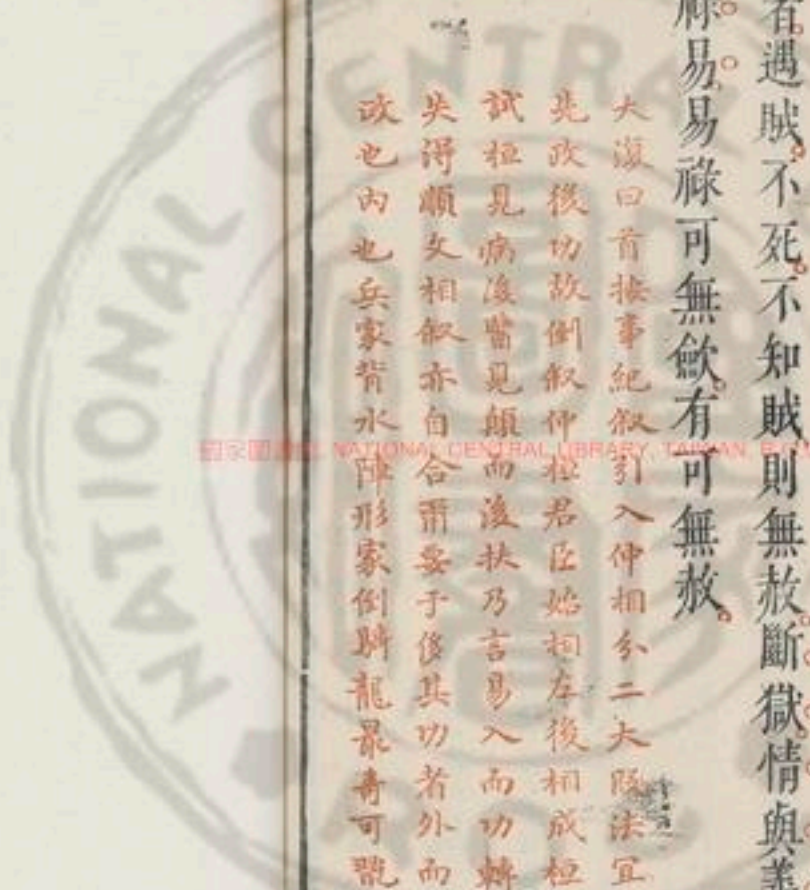 者遇賊不死不知賊則無赦斷獄情與義
祿易易祿可無歛有可無赦
大復曰首摭事紀叙引入仲相分二大段法宜
先政後功故倒叙仲桓君臣始相左後相成桓
試桓見病後醫見顛而後扶乃言易入而功轉
失得順文相叙亦自合爾要于後其功者外而
政也內也兵家背水陣形家倒騎龍最奇可翫
NATIONAL CENTRAL LIBRARY, TAIWAN, R.O.
NATIONAL CENTRAL